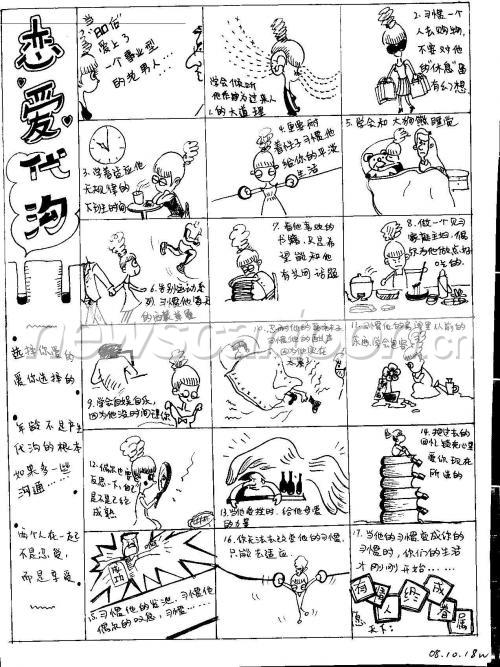 恋爱代沟
选择你爱的
爱你选择的
年龄不是产生
代沟的根本
如果多一些
沟通…
两个人在一起
不是忍受,
而是享受
当
"80后"
爱上了
一个事业型
的老男人…
学会倾听
的大道理
2.习惯一个
人去购物,
不要对他
的"休息"日
有幻想
3.学着适应他
无规律的
4.更要耐
着性子习惯他
给你的平淡
生活
5.学会和大狗熊睡觉
6.告别运动系
列习惯他
7.看他喜欢的
书籍,只是希
望能和他
有共同话题
8.做一个见习
家庭主妇,偶
尔为他做点好
吃的.
9.学会自娱自乐,
因为他没时间理你
因为他实在
12.偶尔也要
反思一下,自己
是不是已经
成熟
13.当他疲惫时,给他母爱
的力量
14.把过去的
回忆锁死心里
爱你现在
所选的
成功
15.习惯他的发泄,习惯他
偶尔的叹息,习惯……
16.你无法去改变他的习惯,
只能去适应
17.当他的习惯变成你的
习惯时,你们的生活
才刚刚开始……
有情人终成眷属
08.10.18w
newscartoon.cn